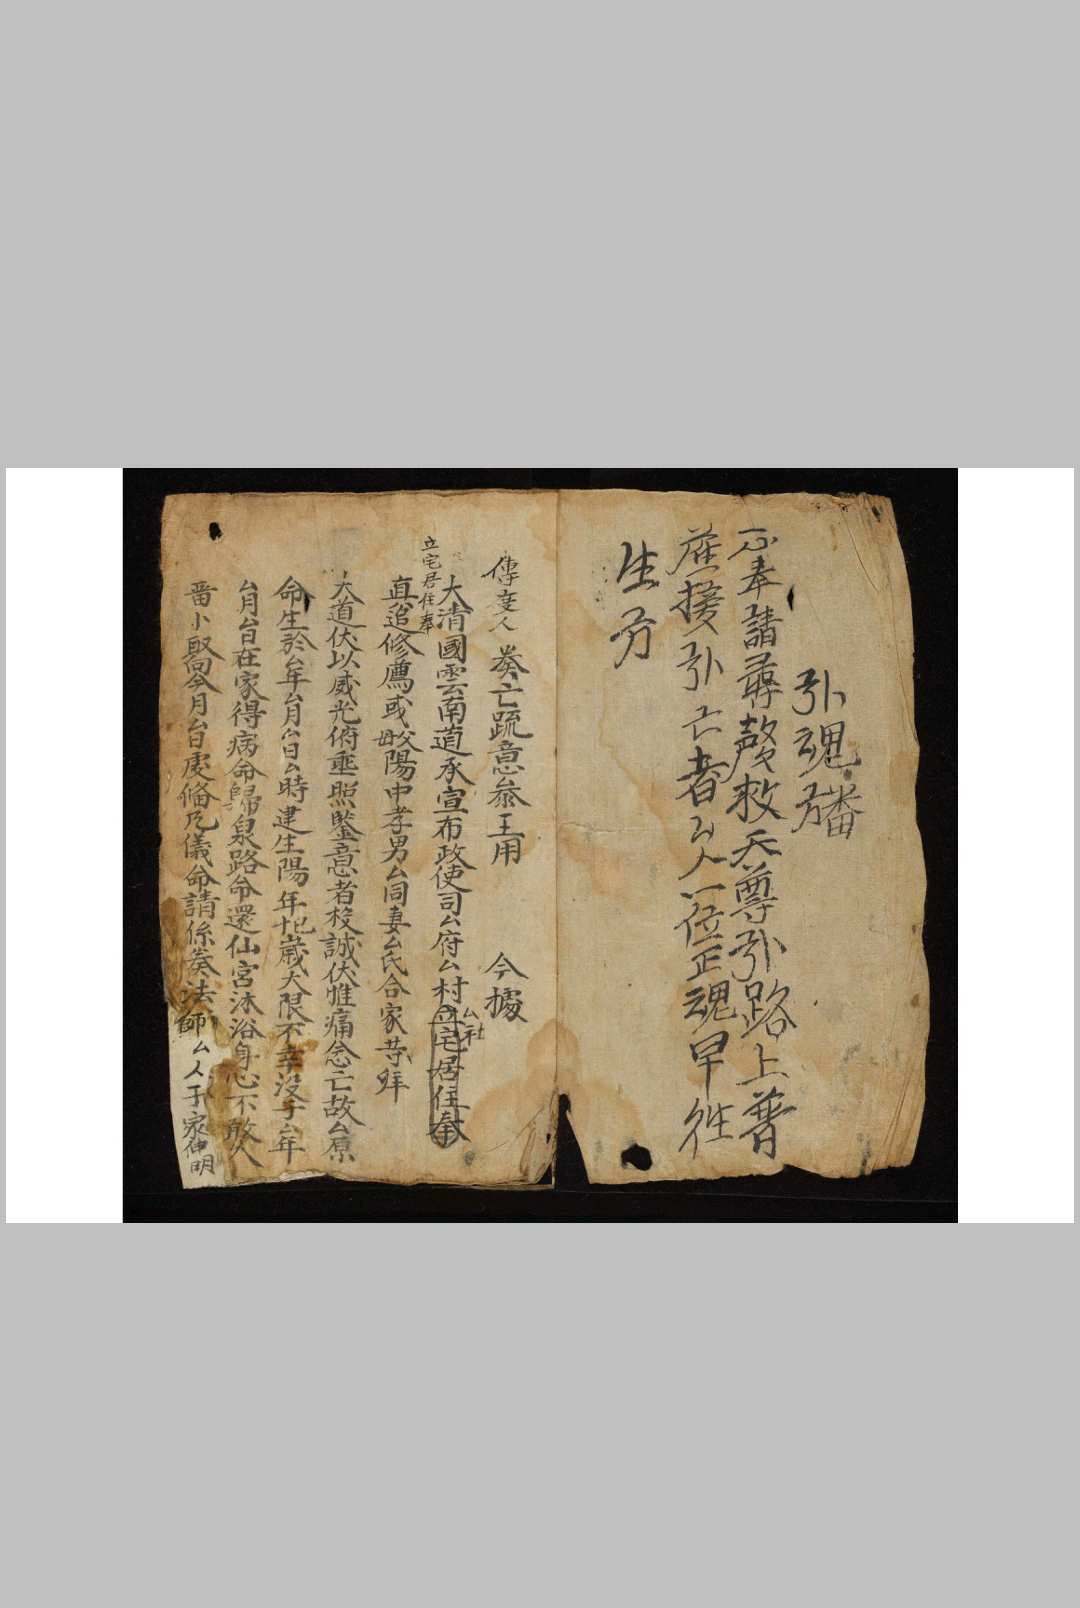 引魂旛
一心奉請尋聲救天尊引路上普
薩接引亡者厶人一位正魂早往
生方
傳度人 奏亡疏意叅王用 今據
大清國雲南道承宣布政使司厶府厶村厶社立宅居住奉
立宅居住奉
真追修薦或父母陽中孝男厶同妻厶氏合家等拜
大道伏以威光俯垂照鑒意者投誠伏惟痛念亡故厶原
命生於厶年厶月厶日厶時建生陽年十几歲大限不幸没于厶年
厶月厶日在家得病命歸泉路命還仙宮沐浴身心不敢久
畱卜取今月厶日處俻凡儀命請係奏法師厶人于家伸明